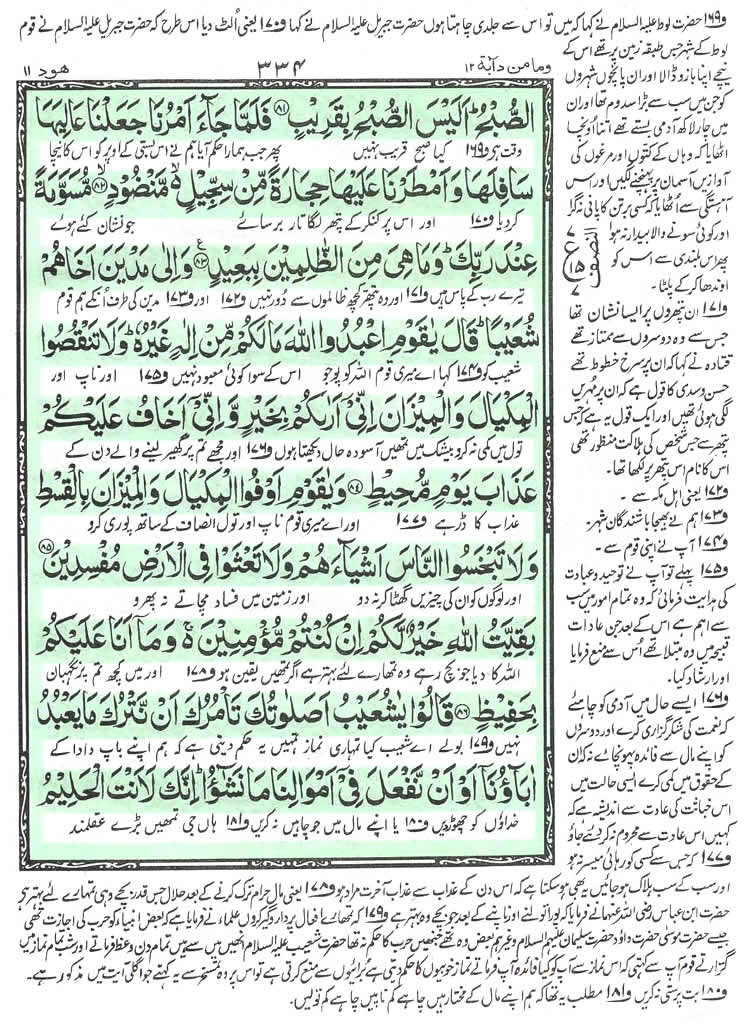 و۱۶۹ حضرت لوط علیہ السلام نے کہا کہ میں تو اس سے جلدی چاہتا ہوں حضرت جبریل علیہ السلام نے کہا و۱۷۰ یعنی اُلٹ دیا اس طرح کہ حضرت جبریل علیہ السلام نے قوم
لوط کے شہر جس طبقہ زمین پر تھے اس کے
نیچے اپنا بازو ڈالا اور ان پانچوں شہروں
کو جن میں سب سے بڑا سدوم تھا اور ان
میں چار لاکھ آدمی بستے تھے اتنا اونچا
اٹھایا کہ وہاں کے کتوں اور مرغوں کی
آوازیں آسمان پر پہنچنے لگیں اور اس
آہستگی سے اٹھایا کہ کسی برتن کا پانی نہ گرا
اور کوئی سونے والا بیدار نہ ہوا
پھر اس بلندی سے اس کو
اوندھا کر کے پلٹا۔
و۱۷۱ ان پتھروں پر ایسا نشان تھا
جس سے وہ دوسروں سے ممتاز تھے
قتادہ نے کہا کہ ان پر سرخ خطوط تھے
حسن و سدی کا قول ہے کہ ان پر مُہریں
لگی ہوئی تھیں اور ایک قول یہ ہے کہ جس
پتھر سے جس شخص کی ہلاکت منظور تھی
اس کا نام اس پتھر پر لکھا تھا۔
و۱۷۲ یعنی اہل مکہ سے۔
و۱۷۳ ہم نے بھیجا باشندگان شہر۔
و۱۷۴ آپ نے اپنی قوم سے۔
و۱۷۵ پہلے تو آپ نے توحید و عبادت
کی ہدایت فرمائی کہ وہ تمام امور میں سب
سے اہم ہے اس کے بعد جن عادات
قبیحہ میں وہ مبتلا تھے اُس سے منع فرمایا
اور ارشاد کیا۔
و۱۷۶ ایسے حال میں آدمی کو چاہئے
کہ نعمت کی شکر گزاری کرے اور دوسروں
کو اپنے مال سے فائدہ پہونچائے نہ کہ ان
کے حقوق میں کمی کرے ایسی حالت میں
اس خیانت کی عادت سے اندیشہ ہے کہ
کہیں اس عادت سے محروم نہ کر دئیے جاؤ
و۱۷۷ کہ جس سے کسی کو رہائی میسر نہ ہو
وما من دآبۃ ۱۲
۳۳۴
ھود ۱۱
الصُّبْحُ ؕ اَلَیْسَ الصُّبْحُ بِقَرِیْبٍ ﴿۸۱﴾ فَلَمَّا جَآءَ اَمْرُنَا جَعَلْنَا عَالِیَهَا
وقت ہی و۱۶۹ کیا صبح قریب نہیں پھر جب ہمارا حکم آیا ہم نے اس بستی کے اوپر کو اس کا نیچا
سَافِلَهَا وَ اَمْطَرْنَا عَلَیْهَا حِجَارَةً مِّنْ سِجِّیْلٍ ۙ۬ مَّنْضُوْدٍ ﴿۸۲﴾ مُّسَوَّمَةً
کر دیا و۱۷۰ اور اس پر کنکر کے پتھر لگاتار برسائے جو نشان کئے ہوئے
عِنْدَ رَبِّكَ ؕ وَ مَا هِیَ مِنَ الظّٰلِمِیْنَ بِبَعِیْدٍ ﴿۸۳﴾ وَ اِلٰی مَدْیَنَ اَخَاهُمْ
تیرے رب کے پاس ہیں و۱۷۱ اور وہ پتھر کچھ ظالموں سے دُور نہیں و۱۷۲ اور و۱۷۳ مدین کی طرف اُنکے ہم قوم
النصف
ع
۱۵
۷
شُعَیْبًا ؕ قَالَ یٰقَوْمِ اعْبُدُوا اللّٰهَ مَا لَكُمْ مِّنْ اِلٰهٍ غَیْرُهٗ ؕ وَ لَا تَنْقُصُوا
شعیب کو و۱۷۴ کہا اے میری قوم اللہ کو پوجو اس کے سوا کوئی معبود نہیں و۱۷۵ اور ناپ اور
الْمِكْیَالَ وَ الْمِیْزَانَ اِنِّیْۤ اَرٰىكُمْ بِخَیْرٍ وَّ اِنِّیْۤ اَخَافُ عَلَیْكُمْ
تول میں کمی نہ کرو بیشک میں تمھیں آسودہ حال دیکھتا ہوں و۱۷۶ اور مجھے تم پر گھیر لینے والے دن کے
عَذَابَ یَوْمٍ مُّحِیْطٍ ﴿۸۴﴾ وَ یٰقَوْمِ اَوْفُوا الْمِكْیَالَ وَ الْمِیْزَانَ بِالْقِسْطِ
عذاب کا ڈر ہے و۱۷۷ اور اے میری قوم ناپ اور تول انصاف کے ساتھ پوری کرو
وَ لَا تَبْخَسُوا النَّاسَ اَشْیَآءَهُمْ وَ لَا تَعْثَوْا فِی الْاَرْضِ مُفْسِدِیْنَ ﴿۸۵﴾
اور لوگوں کو ان کی چیزیں گھٹا کر نہ دو اور زمین میں فساد مچاتے نہ پھرو
بَقِیَّتُ اللّٰهِ خَیْرٌ لَّكُمْ اِنْ كُنْتُمْ مُّؤْمِنِیْنَ ۚ۬ وَ مَاۤ اَنَا عَلَیْكُمْ
اللہ کا دیا جو بچ رہے وہ تمھارے لئے بہتر ہے اگر تمھیں یقین ہو و۱۷۸ اور میں کچھ تم پر نگہبان
بِحَفِیْظٍ ﴿۸۶﴾ قَالُوْا یٰشُعَیْبُ اَصَلٰوتُكَ تَاْمُرُكَ اَنْ نَّتْرُكَ مَا یَعْبُدُ
نہیں و۱۷۹ بولے اے شعیب کیا تمہاری نماز تمہیں یہ حکم دیتی ہے کہ ہم اپنے باپ دادا کے
اٰبَآؤُنَاۤ اَوْ اَنْ نَّفْعَلَ فِیْۤ اَمْوَالِنَا مَا نَشٰٓؤُا ؕ اِنَّكَ لَاَنْتَ الْحَلِیْمُ
خداؤں کو چھوڑ دیں و۱۸۰ یا اپنے مال میں جو چاہیں نہ کریں و۱۸۱ ہاں جی تمھیں بڑے عقلمند
اور سب کے سب ہلاک ہو جائیں یہ بھی ہو سکتا ہے کہ اس دن کے عذاب سے عذابِ آخرت مراد ہو و۱۷۸ یعنی مال حرام ترک کرنے کے بعد حلال جس قدر بچے وہی تمھارے لئے بہتر ہے
حضرت ابن عباس رضی اللہ عنہما نے فرمایا کہ پورا تولنے اور ناپنے کے بعد جو بچے وہ بہتر ہے و۱۷۹ کہ تمھارے افعال پر دار و گیر کروں علماء نے فرمایا ہے کہ بعض انبیا کو حرب کی اجازت تھی
جیسے حضرت موسٰی حضرت داؤد حضرت سلیمان علیہم السلام وغیرہم بعض وہ تھے جنھیں حرب کا حکم نہ تھا حضرت شعیب علیہ السلام انھیں میں سے ہیں تمام دن وعظ فرماتے اور شب تمام نماز میں
گزارتے قوم آپ سے کہتی کہ اس نماز سے آپ کو کیا فائدہ آپ فرماتے نماز خوبیوں کا حکم دیتی ہے بُرائیوں سے منع کرتی ہے تو اس پر وہ تمسخر سے یہ کہتے جو اگلی آیت میں مذکور ہے۔
و۱۸۰ بت پرستی نہ کریں و۱۸۱ مطلب یہ تھا کہ ہم اپنے مال کے مختار ہیں چاہے کم ناپیں چاہے کم تولیں۔